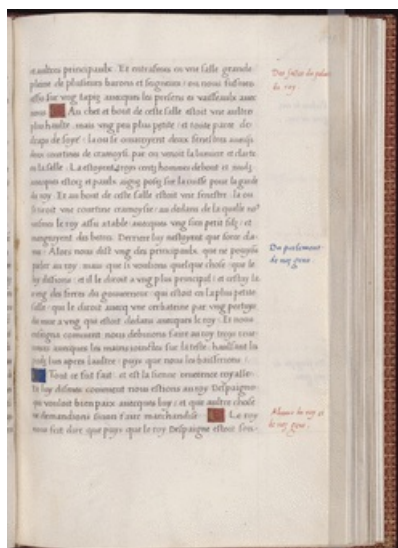 et aultres principaulx. Et entrasmes en vne salle grande
plaine de plusieurs barons et seigneurs: ou nous fusmes
assis sur vng tapis auecques les presens et vaisseaulx auec
nous Au chef et bout de ceste salle estoit vne aultre
plus haulte. mais vng peu plus petite: et toute paree de
draps de soye: la ou
deux courtines de cramoysi. par ou venoit la lumiere et clarte
en la salle. La estoyent troys cents hommes debout et nudz
auecques estocz et
du roy. Et au bout de ceste salle estoit vne fenestre. la ou
vne courtine cramoysie: au dedans de la quelle
le roy assis a table. auecques vng sien petit filz: et
du betre. Derriere luy nestoyent que force
Alors nous dist vng des principaulx. que ne pouyons
parler au roy. mais que si voulions quelque chose: que le
luy dissions: et il le diroit a vng plus principal: et cestuy la
a vng des freres du gouuerneur: qui estoit en la plus petite
salle: que le diroit auecq vne
de mur a vng qui estoit dedans auecques le roy. Et nous
enseigna comment nous debuions faire au roy troys
auecques les mains ioinctes sur la teste. haulsant les
piedz lun apres laultre: puys que nous les baisserions:
Tout ce fut fait: et est la sienne reuerence royalle.
luy dismes comment nous estions au roy Despaigne
que vouloit bien paix auecques luy: et que aultre chose
ne demandions sinon faire marchandise Le roy
nous fist dire que puys que le roy Despaigne estoit son
Des salles du palais
du roy
Du parlement
de noz gens.
du roy et
de noz gens.